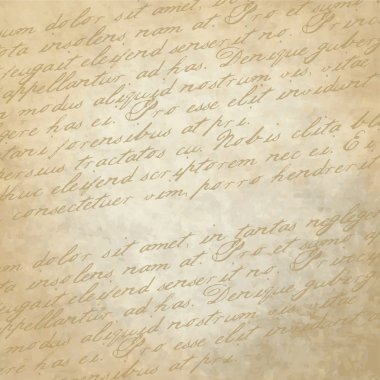 um dolor sit amet, in tantas
ota insolens nam at. Pro et sumo
feugait eleifend senserit no. Princ
appellantur, ad has. Denique guberg
n modus aliquid nostrum vis, vitae
gere has ei. Pro esse elit invidunt
tari forensibus at pri.
persius tractatos cu. Nobis clita bl
dhuc eleifend scriptorem nec ei. Ei,
consectetuer vim, porro hendrerit
m dolor sit amet, in tantas neglige
ta insolens, nam at. Pro et sumo
eugait eleifend senserit no. Princ
appellantur, ad has. Denique guberg
modus aliquid nostrum vis, vitae
ere has ei. Pro esse elit invidunt
ri forensibus at pri.